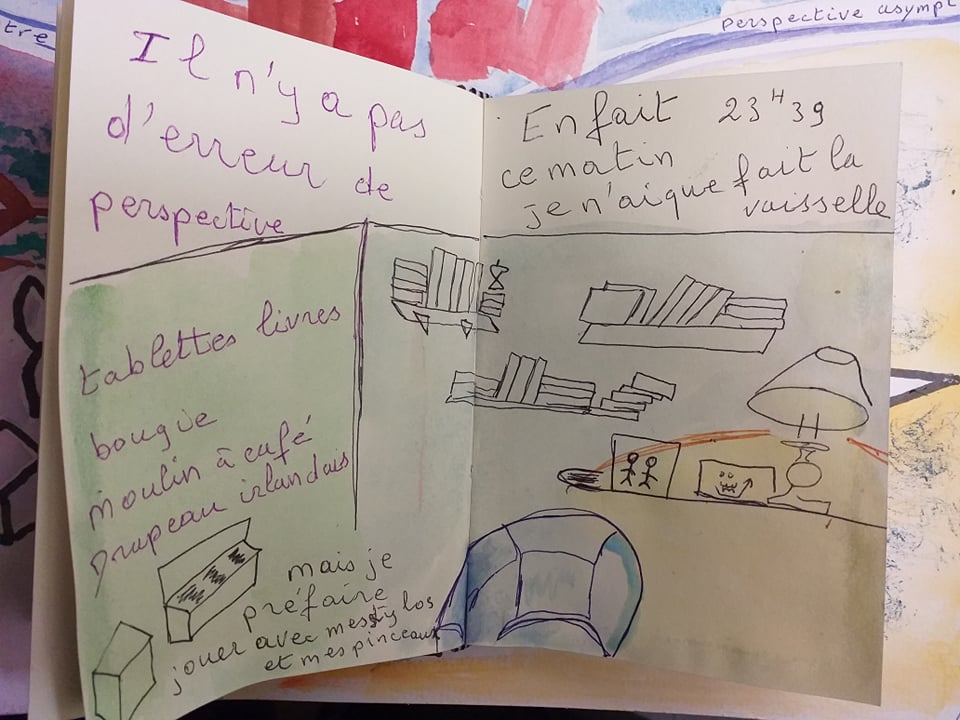 Il n'y a pas
d'erreur de
perspective
tablettes livres
bougie
moulin à café
Drapeau irlandais
mais je
préfaire
jouer avec mes stylos
et mes pinceaux
En fait 23H39
ce matin
je n'ai que fait la
vaisselle
perspective asympt
tre